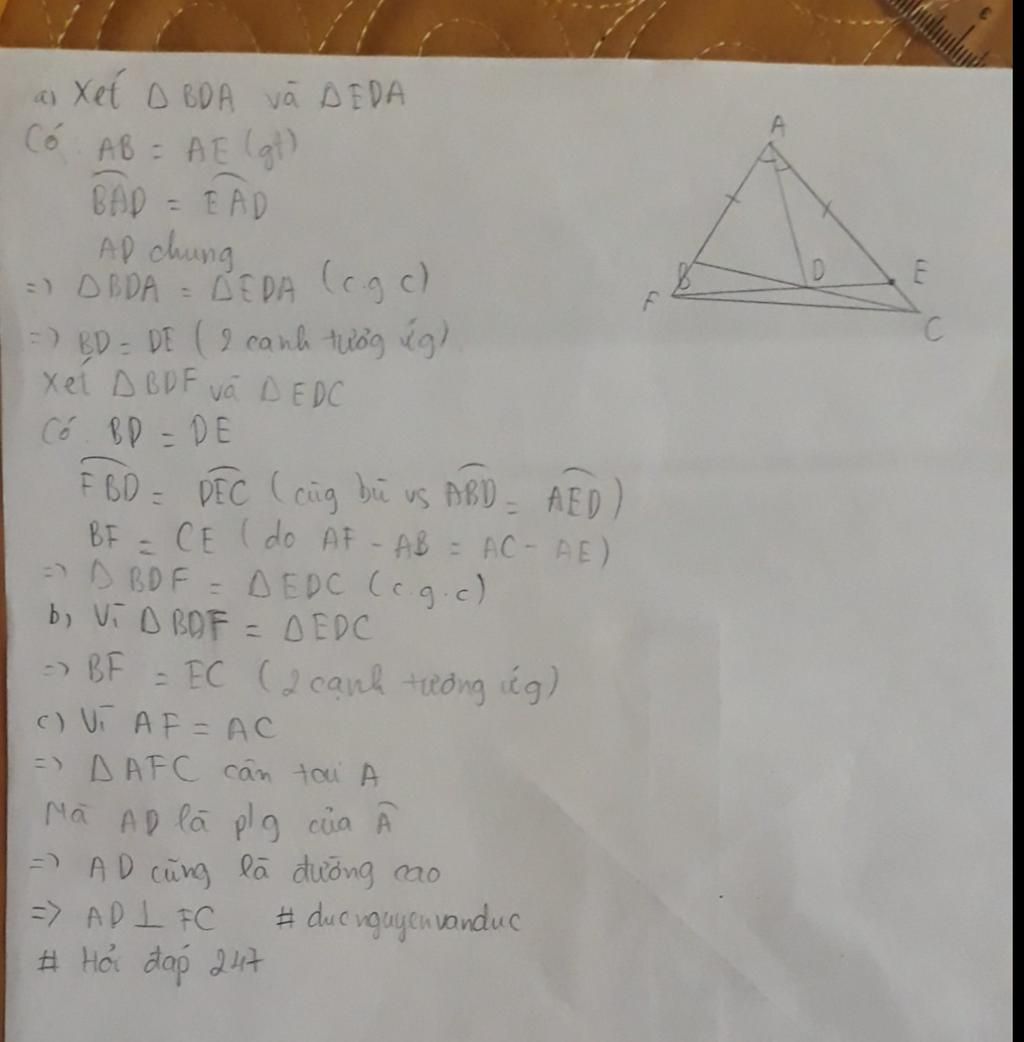 a) Xét Δ BDA và Δ EDA
Có: AB = AE (gt)
BAD = EAD
AD chung
=> Δ BDA = Δ EDA (c.g c)
=> BD = DE (2 cạnh tương ứg)
Xét Δ BDF và Δ EDC
Có: BD = DE
FBD = DEC (cùg bù vs ABD = AED)
BF = CE (do AF - AB = AC - AE)
=> Δ BDF = Δ EDC (c.g.c)
b) Vì Δ BDF = Δ EDC
=> BF = EC (2 cạnh tương ứg)
c) Vì AF = AC
=> Δ AFC cân tại A
Mà AD là p/g của A
=> AD cũng là đường cao
=> AD ⊥ FC # ducnguyenvanduc
# Hỏi đáp 247
A
B
D
E
F
C